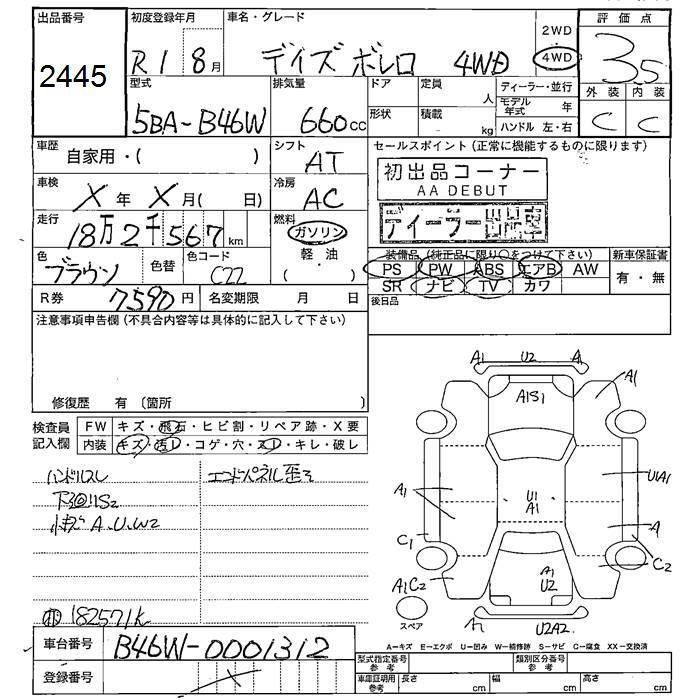 出品番号
2445
初度登録年月
R1 8月
車名・グレード
デイズ ボレロ 4WD
2WD
4WD
評価点
3.5
外装 内装
C C
型式
5BA-B46W
排気量
660cc
ドア
形状
定員
人
積載
kg
ディーラー・並行
モデル年式 年
ハンドル 左・右
車歴
自家用・( )
シフト
AT
車検
X年 X月( 日)
冷房
AC
走行
18万2千567km
燃料
ガソリン
軽・油
色
ブラウン
色替
色コード
C22
R券
7590円
名変期限 月 日
セールスポイント(正常に機能するものに限ります)
初出品コーナー
AA DEBUT
ディーラー出品車
装備品(純正品に限り○をつけて下さい)
新車保証書
PS PW ABS エアB AW
SR ナビ TV カワ
有・無
後日品
注意事項申告欄(不具合内容等は具体的に記入して下さい)
修復歴 有(箇所 )
検査員記入欄
FW キズ・飛石・ヒビ割・リペア跡・X要
内装 キズ・汚レ・コゲ・穴・スレ・キレ・破レ
ハンドルスレ
エンドパネル歪ミ
下廻りS2
小キズA、U、W2
182571k
車台番号
B46W-0001312
登録番号
A1 U2 A
A1B1
A1
A1
U1A1
U1
A1
A
C1
C2
A1C2
A1
U2
U2A2
スペア
A=キズ E=エクボ U=凹み W=補修跡 S=サビ C=腐食 XX=交換済
型式指定番号 参考
類別区分番号 参考
車庫証明用 参考
長さ cm
幅 cm
高さ cm